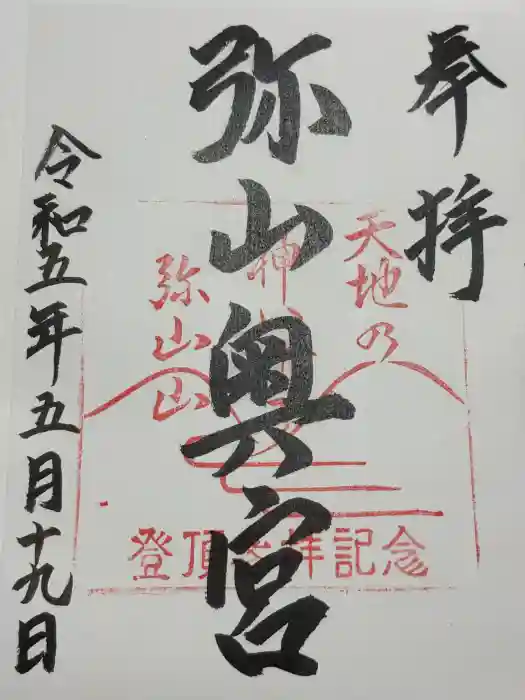 奉拝
弥山奥宮
天地の
神
弥山山
登頂
拝記念
令和五年五月十九日